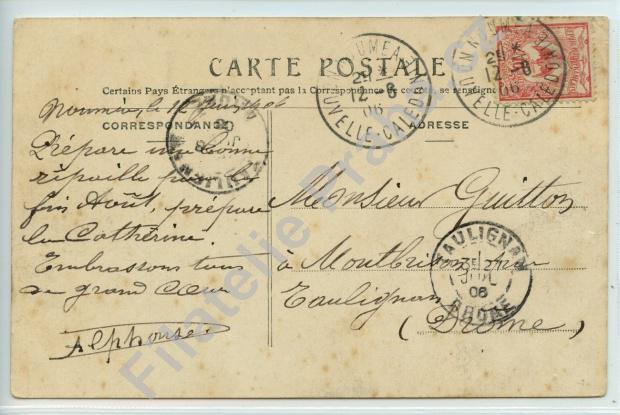 CARTE POSTALE
Certains Pays Étrangers n'acceptant pas la Correspondance de ce côté, se renseigner
CORRESPONDANCE
ADRESSE
NOUMEA
12 6
06
NOUVELLE-CALEDONIE
NOUMEA
2E
12 6
06
NOUVELLE-CALEDONIE
Nouméa, le 12 Juin 1906
Prépare une bonne
ripaille pour
fin Août, prépare
la Cathérine,
Embrassons tous
de grand cœur
Alphonse
Monsieur Guitton
à Montbrison par
Taulignan
(Drome)
TAULIGNAN
JUIL
06
DROME
Filatelie Praha.cz